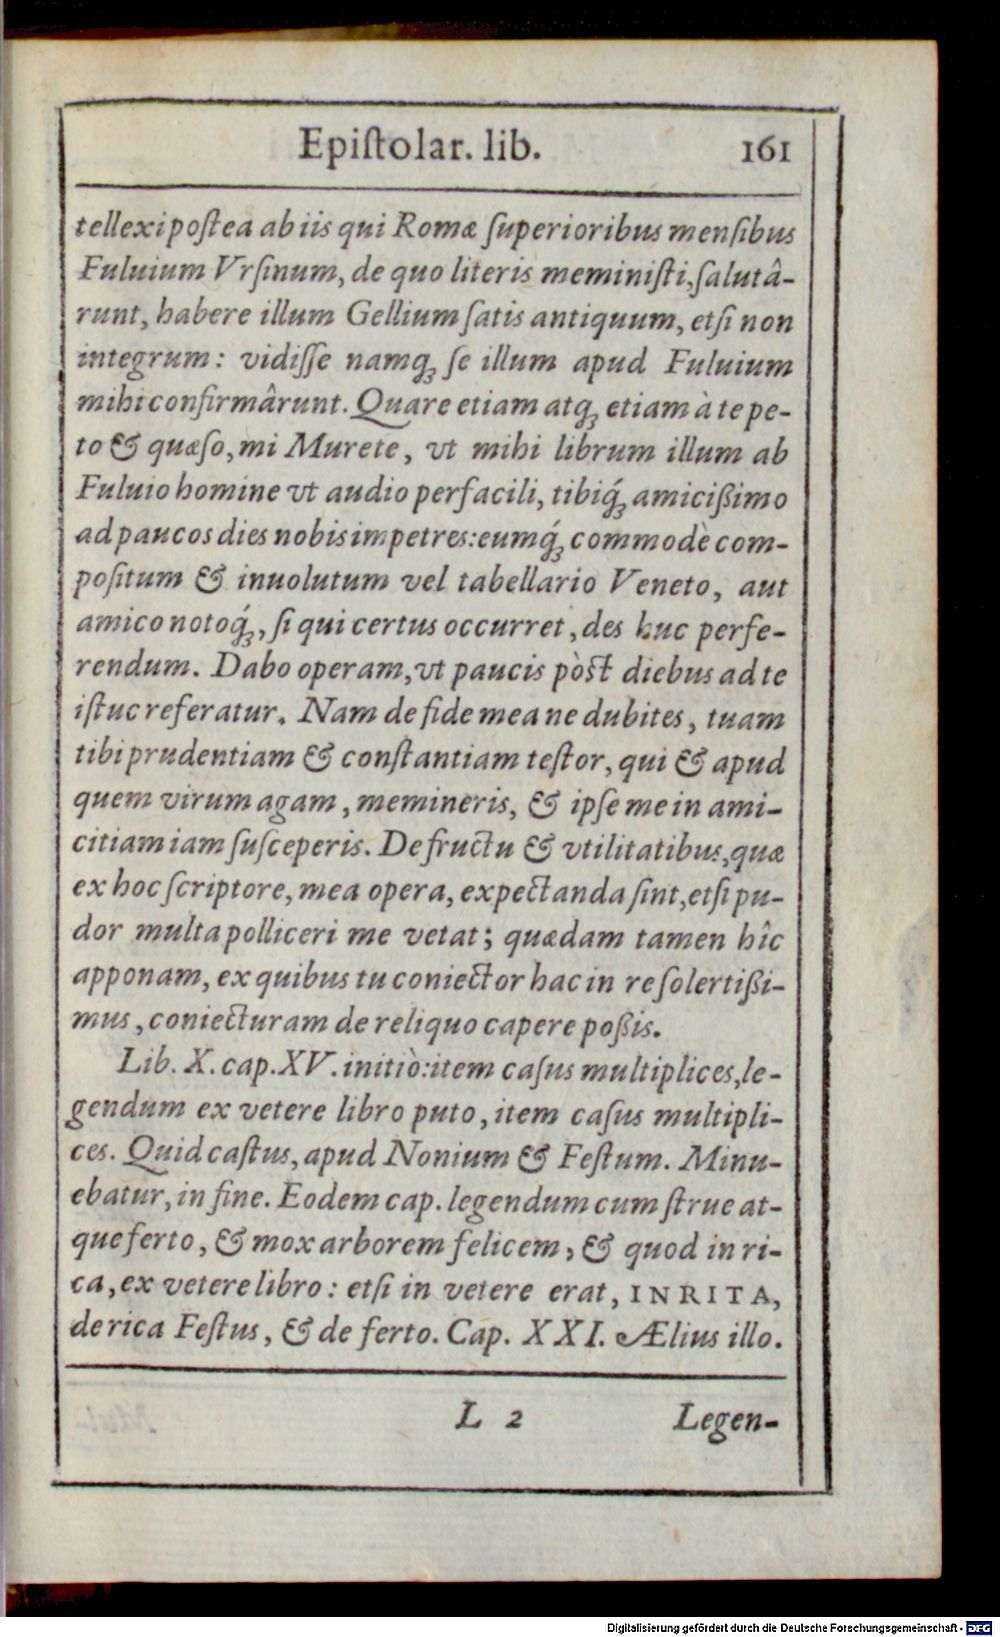 Epiſtolar. lib. 161
tellexi poſtea ab iis qui Romæ ſuperioribus menſibus
Fuluium Vrſinum, de quo literis meminiſti, ſalutâ-
runt, habere illum Gellium ſatis antiquum, etſi non
integrum: vidiſſe namq́ꝫ ſe illum apud Fuluium
mihi confirmârunt. Quare etiam atqꝫ etiam à te pe-
to & quæſo, mi Murete, vt mihi librum illum ab
Fuluio homine vt audio perfacili, tibiq́ꝫ amicißimo
ad paucos dies nobis impetres: eumq́ꝫ commodè com-
poſitum & inuolutum vel tabellario Veneto, aut
amico notoq́ꝫ, ſi qui certus occurret, des huc perfe-
rendum. Dabo operam, vt paucis pòſt diebus ad te
iſtuc referatur. Nam de fide mea ne dubites, tuam
tibi prudentiam & conſtantiam teſtor, qui & apud
quem virum agam, memineris, & ipſe me in ami-
citiam iam ſuſceperis. De fructu & vtilitatibus, quæ
ex hoc ſcriptore, mea opera, expectanda ſint, etſi pu-
dor multa polliceri me vetat; quædam tamen hîc
apponam, ex quibus tu coniector hac in re ſolertißi-
mus, coniecturam de reliquo capere poßis.
Lib. X. cap. XV. initiò: item caſus multiplices, le-
gendum ex vetere libro puto, item caſus multipli-
ces. Quid caſtus, apud Nonium & Feſtum. Minu-
ebatur, in fine. Eodem cap. legendum cum ſtrue at-
que ferto, & mox arborem felicem, & quod in ri-
ca, ex vetere libro: etſi in vetere erat, INRITA,
de rica Feſtus, & de ferto. Cap. XXI. Ælius illo.
L 2 Legen-
Digitalisierung gefördert durch die Deutsche Forschungsgemeinschaft - DFG